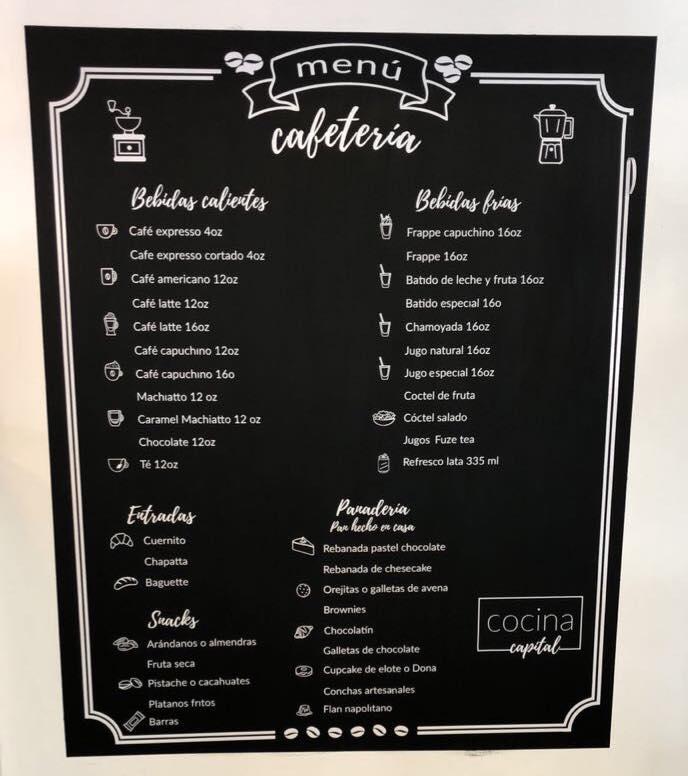 menú
cafetería
Bebidas calientes
Café expresso 4oz
Cafe expresso cortado 4oz
Café americano 12oz
Café latte 12oz
Café latte 16oz
Café capuchino 12oz
Café capuchino 16o
Machiatto 12 oz
Caramel Machiatto 12 oz
Chocolate 12oz
Té 12oz
Bebidas frias
Frappe capuchino 16oz
Frappe 16oz
Batido de leche y fruta 16oz
Batido especial 16o
Chamoyada 16oz
Jugo natural 16oz
Jugo especial 16oz
Coctel de fruta
Cóctel salado
Jugos Fuze tea
Refresco lata 335 ml
Entradas
Cuernito
Chapatta
Baguette
Snacks
Arándanos o almendras
Fruta seca
Pistache o cacahuates
Platanos fritos
Barras
Panadería
Pan hecho en casa
Rebanada pastel chocolate
Rebanada de chesecake
Orejitas o galletas de avena
Brownies
Chocolatín
Galletas de chocolate
Cupcake de elote o Dona
Conchas artesanales
Flan napolitano
cocina
capital